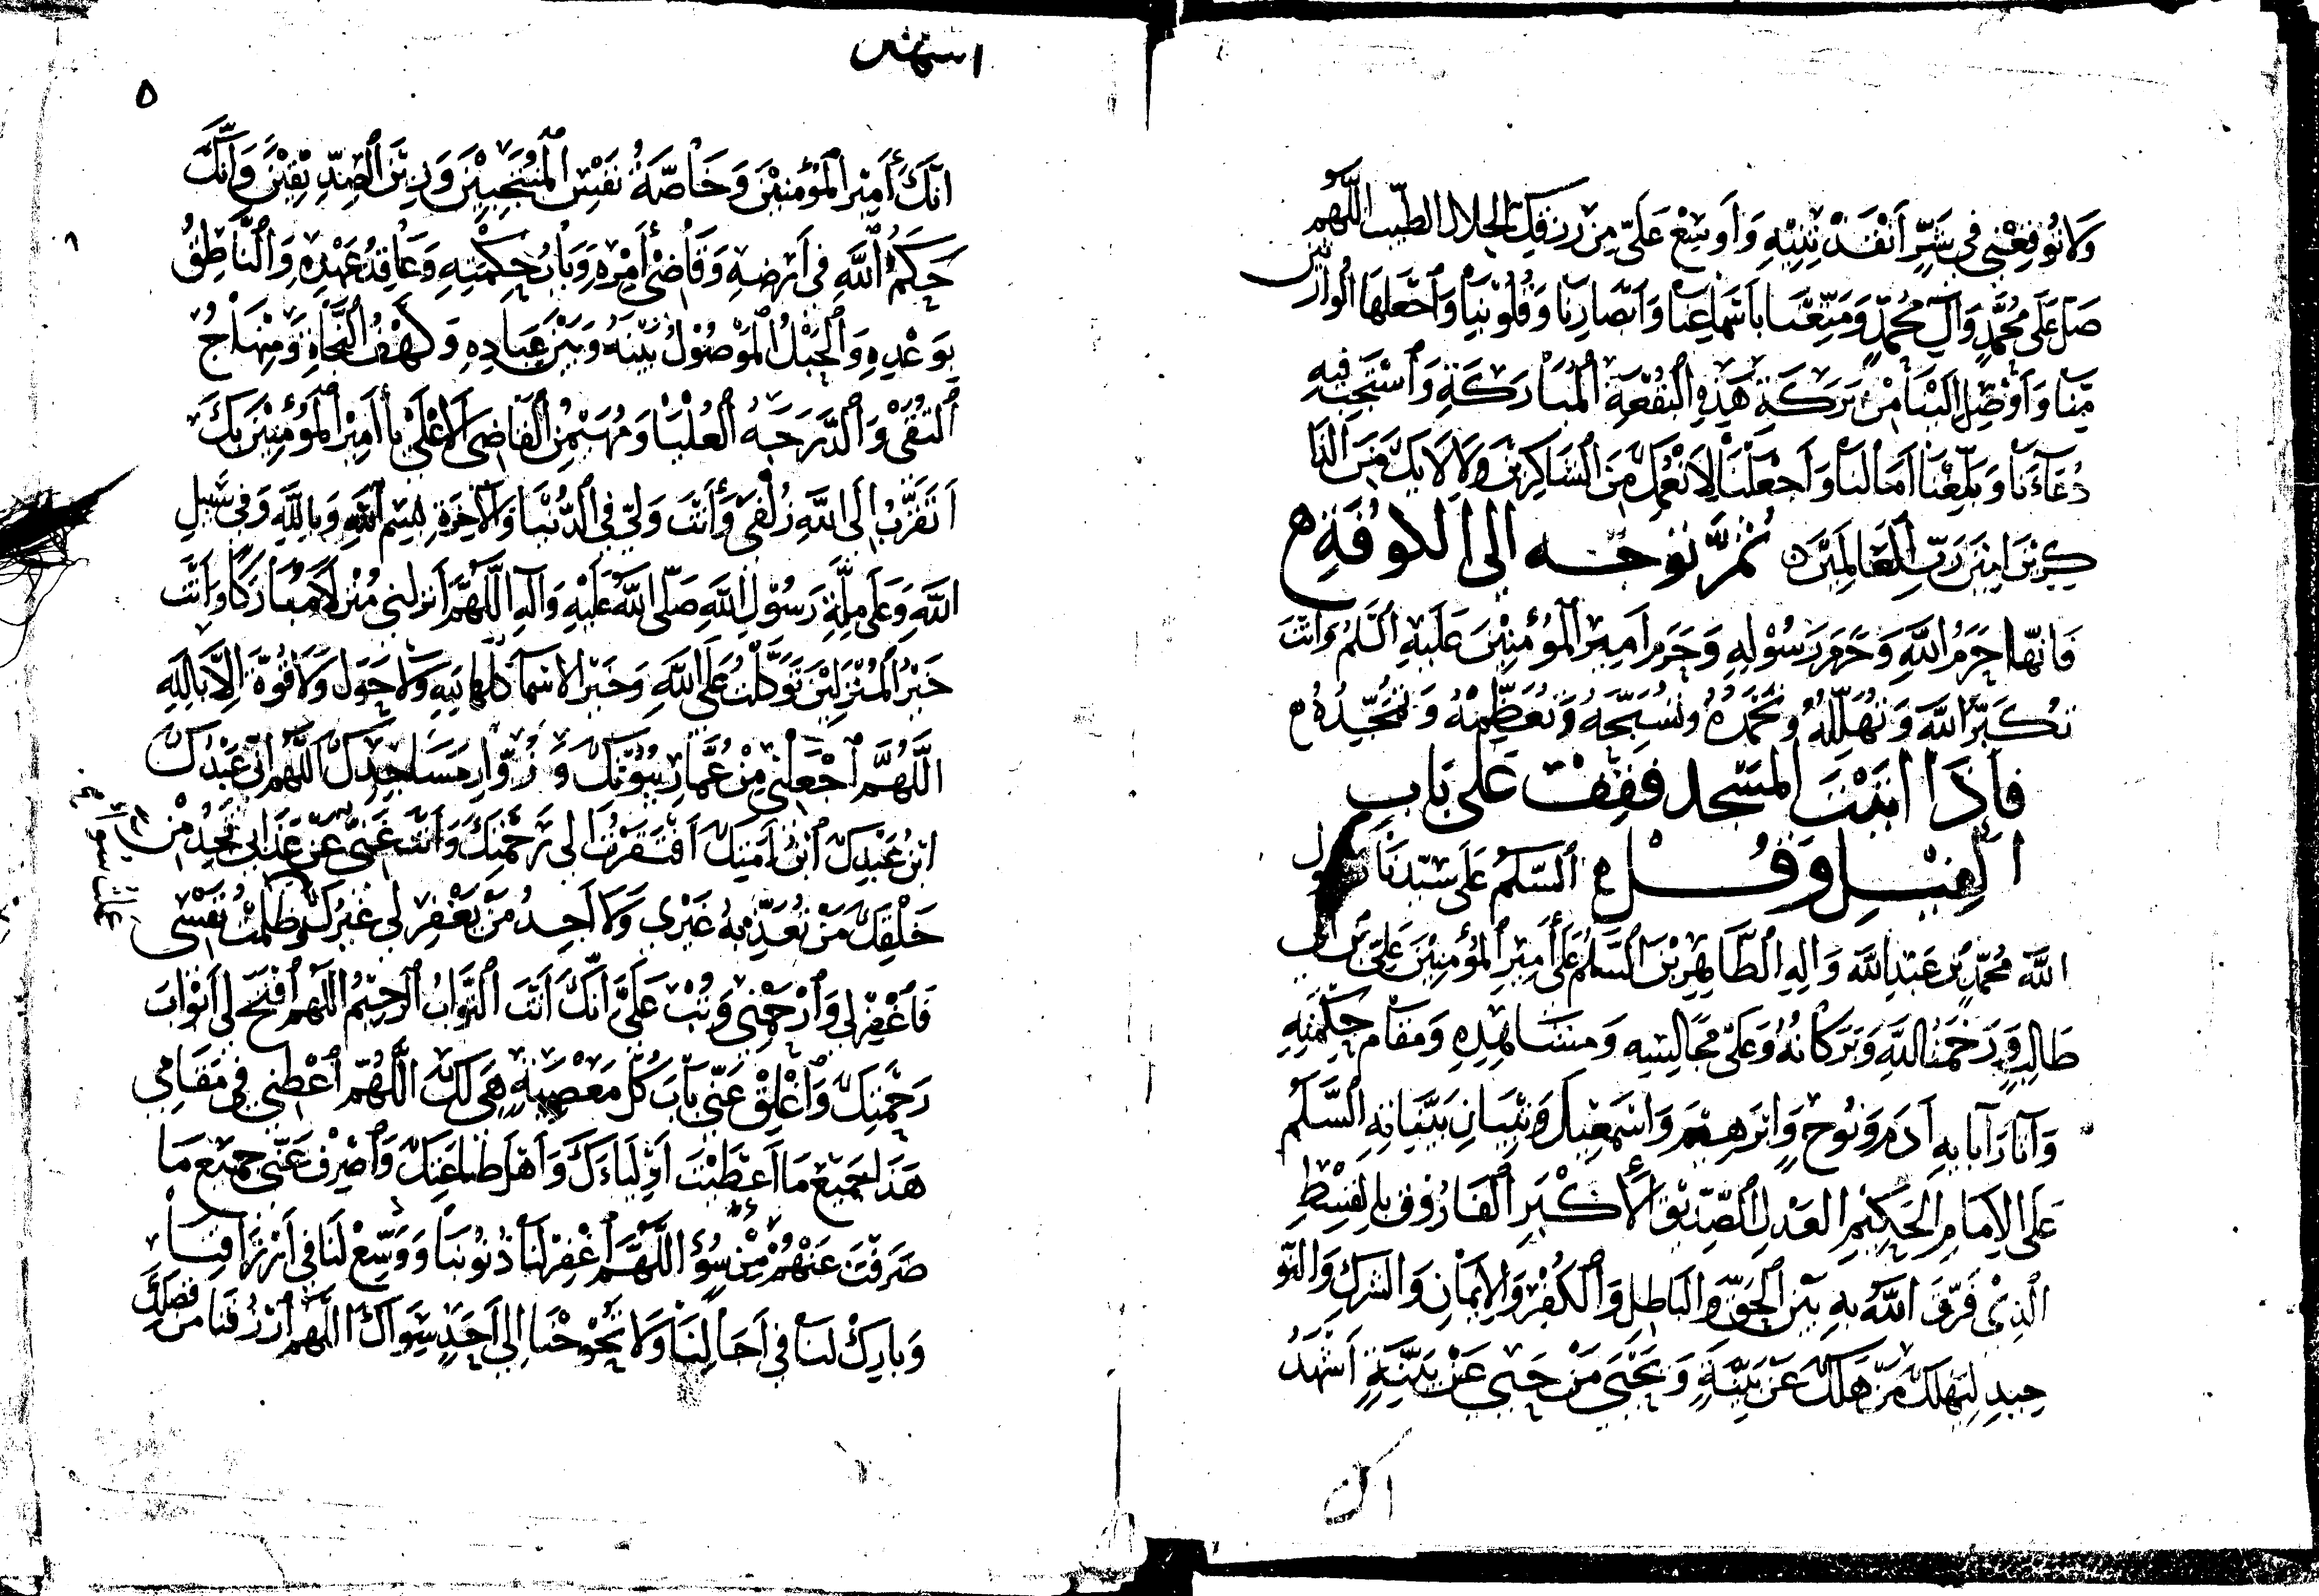 وَلَا تُوقِعْنِي فِي شَرٍّ أَنْقَذْتَنِيهِ وَأَوْسِعْ عَلَيَّ مِنْ رِزْقِكَ الْحَلَالِ الطَّيِّبِ اللَّهُمَّ
صَلِّ عَلَى مُحَمَّدٍ وَآلِ مُحَمَّدٍ وَمَتِّعْنَا بِأَسْمَاعِنَا وَأَبْصَارِنَا وَقُلُوبِنَا وَاجْعَلْهَا الْوَارِثِينَ
مِنَّا وَأَوْصِلْ إِلَيْنَا مِنْ بَرَكَةِ هَذِهِ الْبُقْعَةِ الْمُبَارَكَةِ وَاسْتَجِبْ فِيهِ
دُعَاءَنَا وَبَلِّغْنَا آمَالَنَا وَاجْعَلْنَا لِأَنْعُمِكَ مِنَ الشَّاكِرِينَ وَلِآلَائِكَ مِنَ الذَّا
كِرِينَ آمِينَ رَبَّ الْعَالَمِينَ ثُمَّ تَوَجَّه إلى الْكُوفَةِ
فَإِنَّهَا حَرَمُ اللَّهِ وَحَرَمُ رَسُولِهِ وَحَرَمُ أَمِيرِ الْمُؤْمِنِينَ عَلَيْهِ السَّلَمُ وَأَنْتَ
تُكَبِّرُ اللَّهَ وَتُهَلِّلُهُ وَتَحْمَدُهُ وَتُسَبِّحُهُ وَتُعَظِّمُهُ وَتُمَجِّدُهُ
فَإِذَا أَتَيْتَ الْمَسْجِدَ فَقِفْ عَلَى بَابِ
الْفِيلِ وَقُلْ السَّلَمُ عَلَى سَيِّدِنَا رَسُولِ
اللَّهِ مُحَمَّدِ بْنِ عَبْدِ اللَّهِ وَآلِهِ الطَّاهِرِينَ السَّلَمُ عَلَى أَمِيرِ الْمُؤْمِنِينَ عَلِيِّ بْنِ أَبِي
طَالِبٍ وَرَحْمَةُ اللَّهِ وَبَرَكَاتُهُ وَعَلَى مَجَالِسِهِ وَمَشَاهِدِهِ وَمَقَامِ حِكْمَتِهِ
وَآثَارِ آبَائِهِ آدَمَ وَنُوحٍ وَإِبْرَهِيمَ وَإِسْمَعِيلَ وَتِبْيَانِ بَيِّنَاتِهِ السَّلَمُ
عَلَى الْإِمَامِ الْحَكِيمِ الْعَدْلِ الصِّدِّيقِ الْأَكْبَرِ الْفَارُوقِ بِالْقِسْطِ
الَّذِي فَرَّقَ اللَّهُ بِهِ بَيْنَ الْحَقِّ وَالْبَاطِلِ وَالْكُفْرِ وَالْإِيمَانِ وَالشِّرْكِ وَالتَّوْ
حِيدِ لِيَهْلِكَ مَنْ هَلَكَ عَنْ بَيِّنَةٍ وَيَحْيَى مَنْ حَيِيَ عَنْ بَيِّنَةٍ أَشْهَدُ
انك
٥
إِنَّكَ أَمِيرُ الْمُؤْمِنِينَ وَخَاصَّةُ نَفْسِ الْمُنْتَجَبِينَ وَزَيْنُ الصِّدِّيقِينَ وَإِنَّكَ
حَكَمُ اللَّهِ فِي أَرْضِهِ وَقَاضِي أَمْرِهِ وَبَابُ حِكْمَتِهِ وَعَاقِدُ عَهْدِهِ وَالنَّاطِقُ
بِوَعْدِهِ وَالْحَبْلُ الْمَوْصُولُ بَيْنَهُ وَبَيْنَ عِبَادِهِ وَكَهْفُ النَّجَاةِ وَمِنْهَاجُ
التُّقَى وَالدَّرَجَةُ الْعُلْيَا وَمُهَيْمِنُ الْقَاضِي الْأَعْلَى يَا أَمِيرَ الْمُؤْمِنِينَ بِكَ
أَتَقَرَّبُ إِلَى اللَّهِ زُلْفَى وَأَنْتَ وَلِيِّي فِي الدُّنْيَا وَالْآخِرَةِ بِسْمِ اللَّهِ وَبِاللَّهِ وَفِي سَبِيلِ
اللَّهِ وَعَلَى مِلَّةِ رَسُولِ اللَّهِ صَلَّى اللَّهُ عَلَيْهِ وَآلِهِ اللَّهُمَّ أَنْزِلْنِي مُنْزَلًا مُبَارَكًا وَأَنْتَ
خَيْرُ الْمُنْزِلِينَ تَوَكَّلْتُ عَلَى اللَّهِ وَخَيْرُ الْأَسْمَاءِ كُلِّهَا لِلَّهِ وَلَا حَوْلَ وَلَا قُوَّةَ إِلَّا بِاللَّهِ
اللَّهُمَّ اجْعَلْنِي مِنْ عُمَّارِ بُيُوتِكَ وَزُوَّارِ مَسَاجِدِكَ اللَّهُمَّ إِنِّي عَبْدُكَ
ابْنُ عَبْدِكَ ابْنُ أَمَتِكَ افْتَقَرْتُ إِلَى رَحْمَتِكَ وَأَنْتَ غَنِيٌّ عَنْ عَذَابِي تَجِدُ مِنْ
خَلْقِكَ مَنْ تُعَذِّبُهُ غَيْرِي وَلَا أَجِدُ مَنْ يَغْفِرُ لِي غَيْرَكَ ظَلَمْتُ نَفْسِي
فَاغْفِرْ لِي وَارْحَمْنِي وَتُبْ عَلَيَّ إِنَّكَ أَنْتَ التَّوَّابُ الرَّحِيمُ اللَّهُمَّ افْتَحْ لِي أَبْوَابَ
رَحْمَتِكَ وَأَغْلِقْ عَنِّي بَابَ كُلِّ مَعْصِيَةٍ هِيَ لَكَ اللَّهُمَّ أَعْطِنِي فِي مَقَامِي
هَذَا جَمِيعَ مَا أَعْطَيْتَ أَوْلِيَاءَكَ وَأَهْلَ طَاعَتِكَ وَاصْرِفْ عَنِّي جَمِيعَ مَا
صَرَفْتَ عَنْهُمْ مِنْ سُوءٍ اللَّهُمَّ اغْفِرْ لَنَا ذُنُوبَنَا وَوَسِّعْ لَنَا فِي أَرْزَاقِنَا
وَبَارِكْ لَنَا فِي آجَالِنَا وَلَا تُحْوِجْنَا إِلَى أَحَدٍ سِوَاكَ اللَّهُمَّ ارْزُقْنَا مِنْ فَضْلِكَ